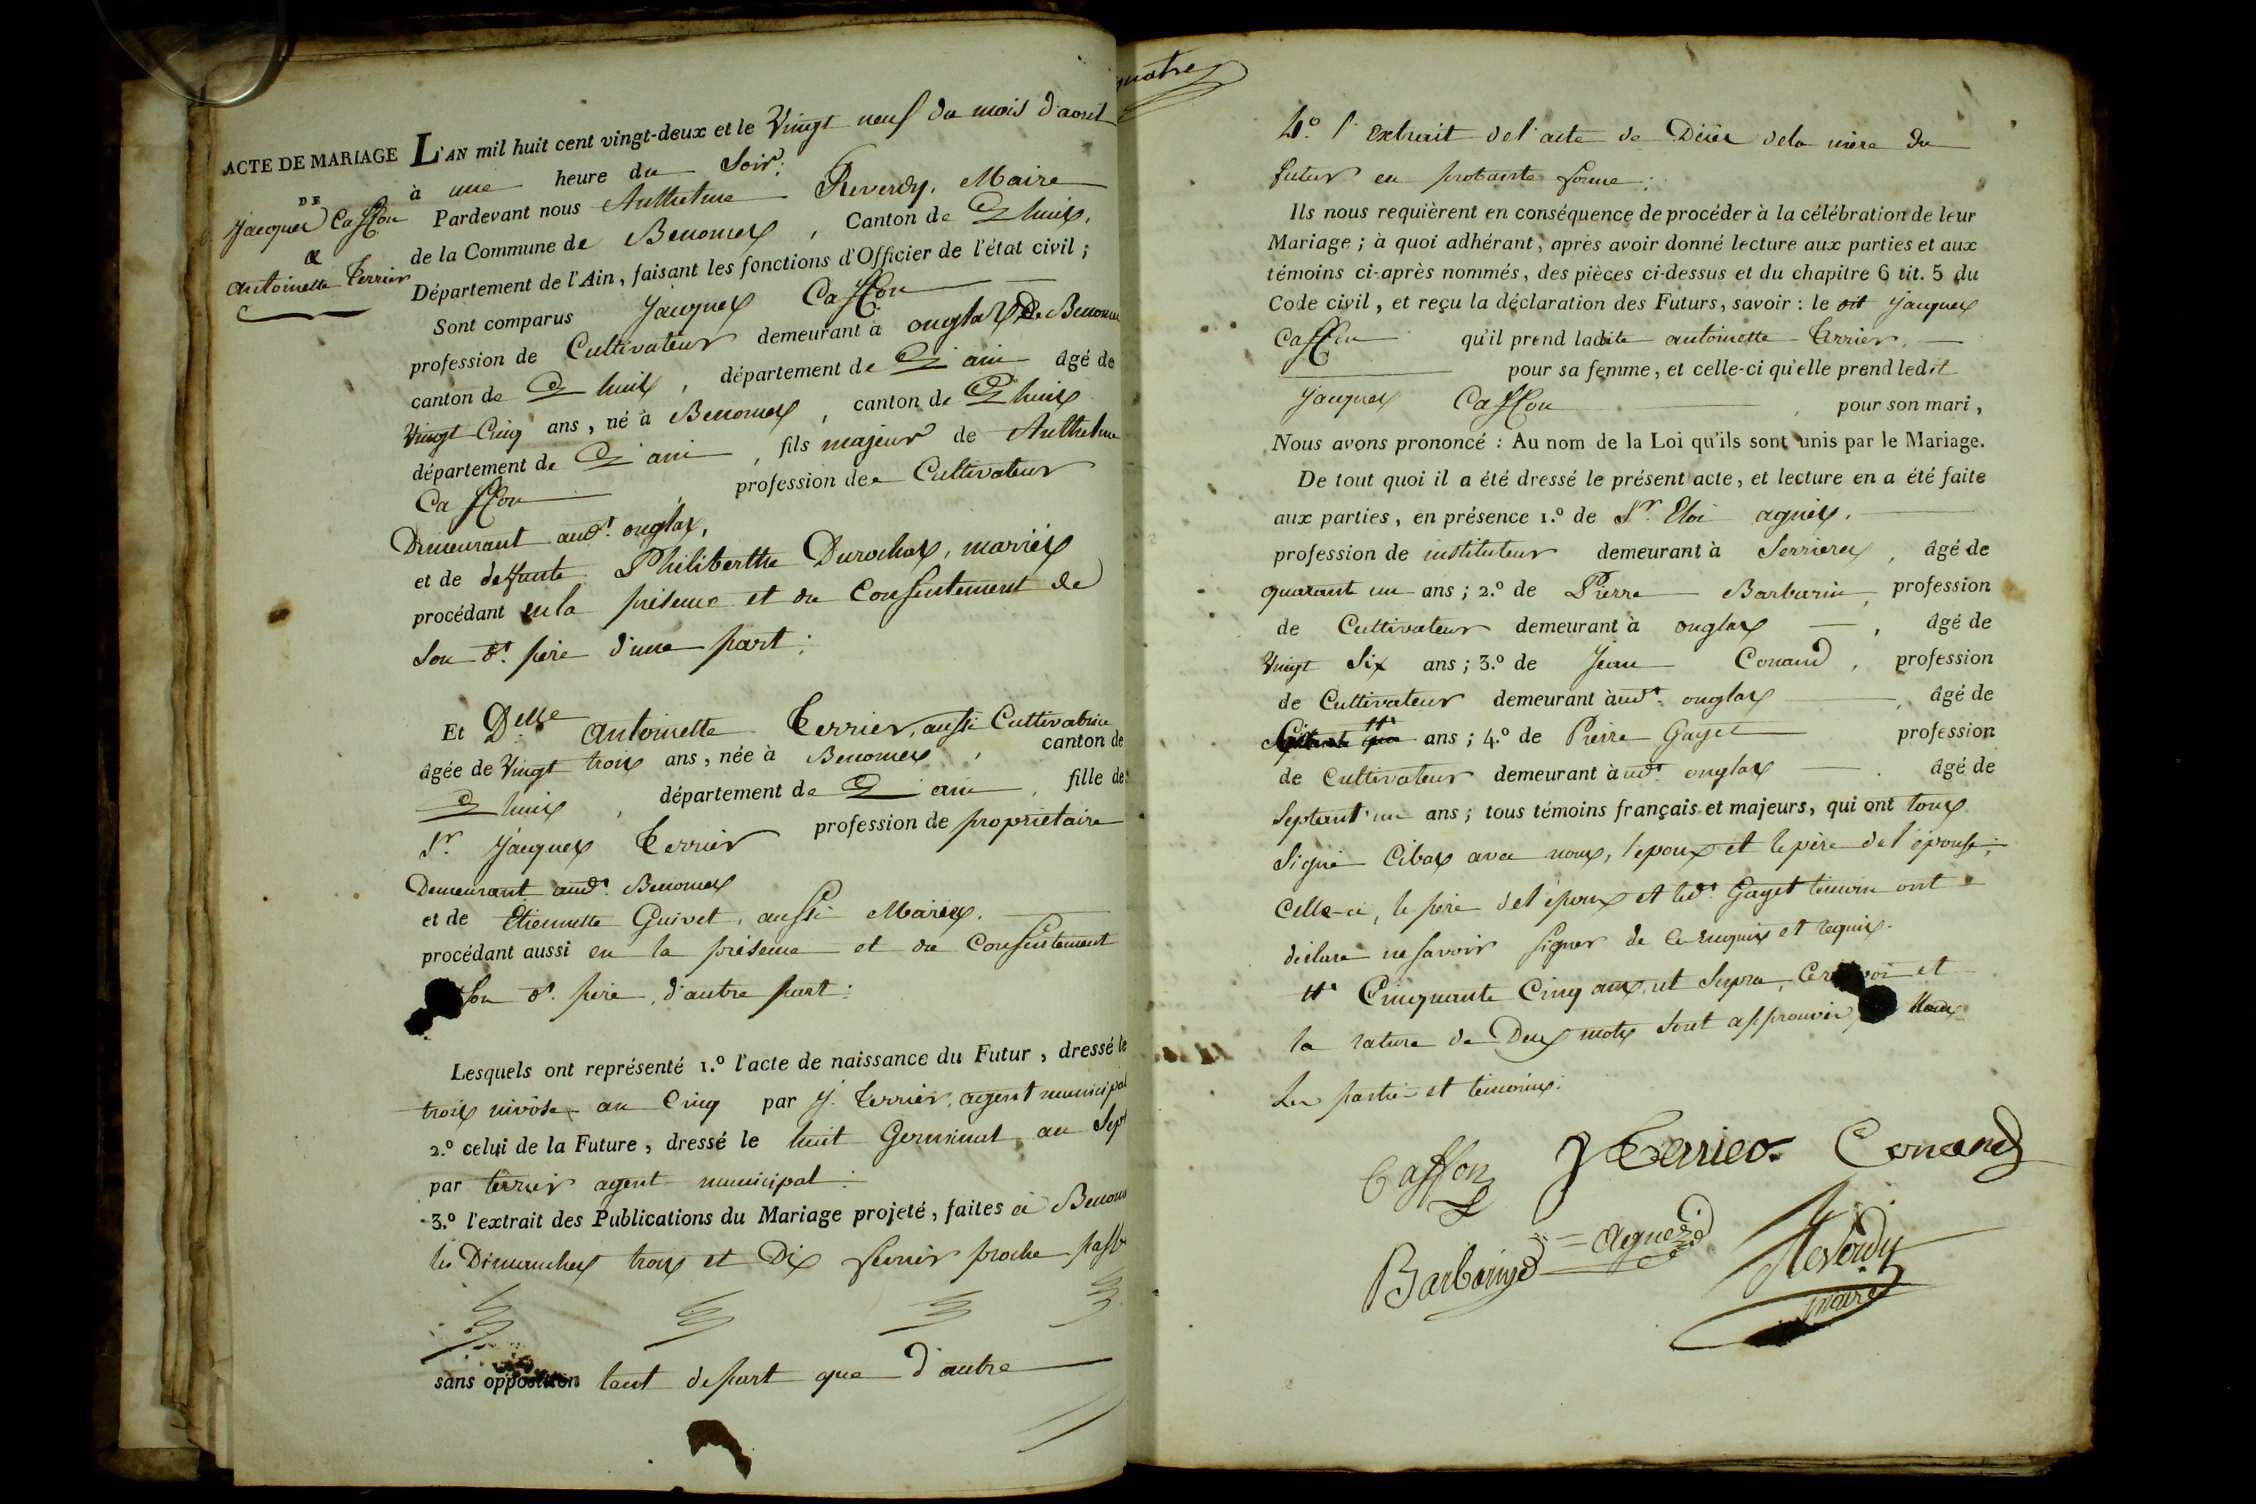 ACTE DE MARIAGE
DE
Jacques Casson
&
antoinette Terrier
L'AN mil huit cent vingt-deux et le Vingt neuf du mois d'avril
à une heure du Soir;
Pardevant nous Anthelme Reverdy, Maire
de la Commune de Benonces, Canton de L'huis,
Département de l'Ain, faisant les fonctions d'Officier de l'état civil;
Sont comparus Jacques Casson
profession de Cultivateur demeurant à onglas De Benonces
canton de L'huis, département de L'ain âgé de
Vingt Cinq ans, né à Benonces, canton de L'huis
département de L'ain, fils majeur de Anthelme
Casson, profession de Cultivateur
Demeurant aud.t onglas,
et de deffunte Philiberthe Durochas, mariés
procédant en la présence et du Consentement de
Son d.t père d'une part;
Et D.elle antoinette Terrier, aussi Cultivatrice
âgée de Vingt trois ans, née à Benonces, canton de
L'huis, département de L'ain, fille de
S.r Jacques Terrier profession de propriétaire
Demeurant aud.t Benonces
et de Etiennette Guivet, aussi Mariés,
procédant aussi en la présence et du Consentement
Son d.t père, d'autre part:
Lesquels ont représenté 1.º l'acte de naissance du Futur, dressé le
trois nivose an Cinq par J. Terrier, agent municipal
2.º celui de la Future, dressé le huit Germinal an Sept
par terrier agent municipal:
3.º l'extrait des Publications du Mariage projeté, faites à Benonces
les Dimanches trois et Dix fevrier proche passé
sans opposition tant de part que d'autre
quatre
4.º l'extrait de l'acte de Décès de la mère du
futur en probante forme;
Ils nous requièrent en conséquence de procéder à la célébration de leur
Mariage; à quoi adhérant, après avoir donné lecture aux parties et aux
témoins ci-après nommés, des pièces ci-dessus et du chapitre 6 tit. 5 du
Code civil, et reçu la déclaration des Futurs, savoir: le dit Jacques
Casson qu'il prend ladite antoinette Terrier,
pour sa femme, et celle-ci qu'elle prend ledit
Jacques Casson, pour son mari,
Nous avons prononcé: Au nom de la Loi qu'ils sont unis par le Mariage.
De tout quoi il a été dressé le présent acte, et lecture en a été faite
aux parties, en présence 1.º de S.r Eloi agniés,
profession de instituteur demeurant à Serrieres, âgé de
quarant un ans; 2.º de Pierre Barbarin, profession
de Cultivateur demeurant à onglas, âgé de
Vingt Six ans; 3.º de Jean Conand, profession
de Cultivateur demeurant àud.t onglas, âgé de
ans; 4.º de Pierre Gayet profession
de Cultivateur demeurant àud.t onglas, âgé de
Septant'un ans; tous témoins français et majeurs, qui ont tous
Signé Cibas avec nous, l'epoux et le père de l'épouse;
Celle-ci, le père de l'époux et led.t Gayet témoin ont
déclaré ne savoir signer de ce enquis et requis.
Cinquante Cinq ans, ut Supra, et
la rature de Deux mots sont approuvés
Les parties et témoins:
Casson J Terrier Conand
Barbarin Agniés Reverdy
maire